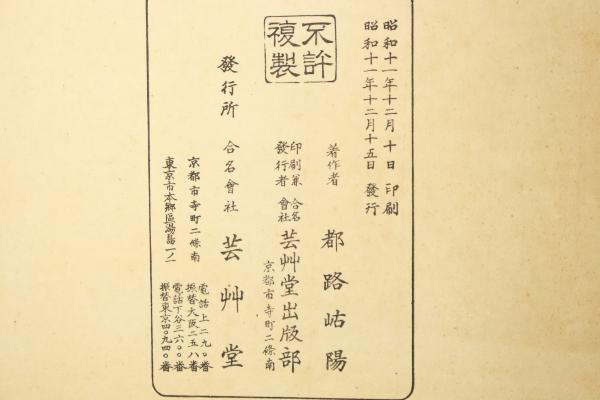 昭和十一年十二月十日印刷
昭和十一年十二月十五日發行
不許
複製
著作者 都路岵陽
印刷兼
發行者
合名
會社
芸艸堂出版部
京都市寺町二條南
發行所 合名會社 芸艸堂
京都市寺町二條南
電話上二九〇番
振替大阪二五八番
東京市本郷區湯島一ノ一
電話下谷三六〇〇番
振替東京四〇九四〇番